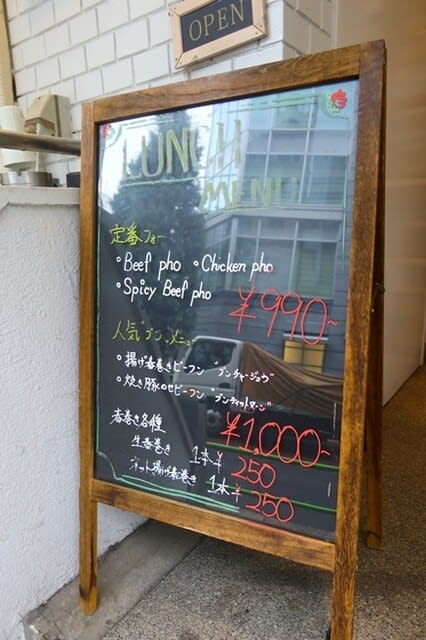 OPEN
LUNCH
MENU
定番フォー
・Beef pho ・Chicken pho
・Spicy Beef pho
¥990~
人気ブン、メニュー
・揚げ春巻きビーフン "ブンチャージョウ"
・焼き豚のせビーフン "ブンティットヌーン"
¥1,000~
春巻き各種
生春巻き 1本¥250
ネット揚げ春巻き 1本¥250